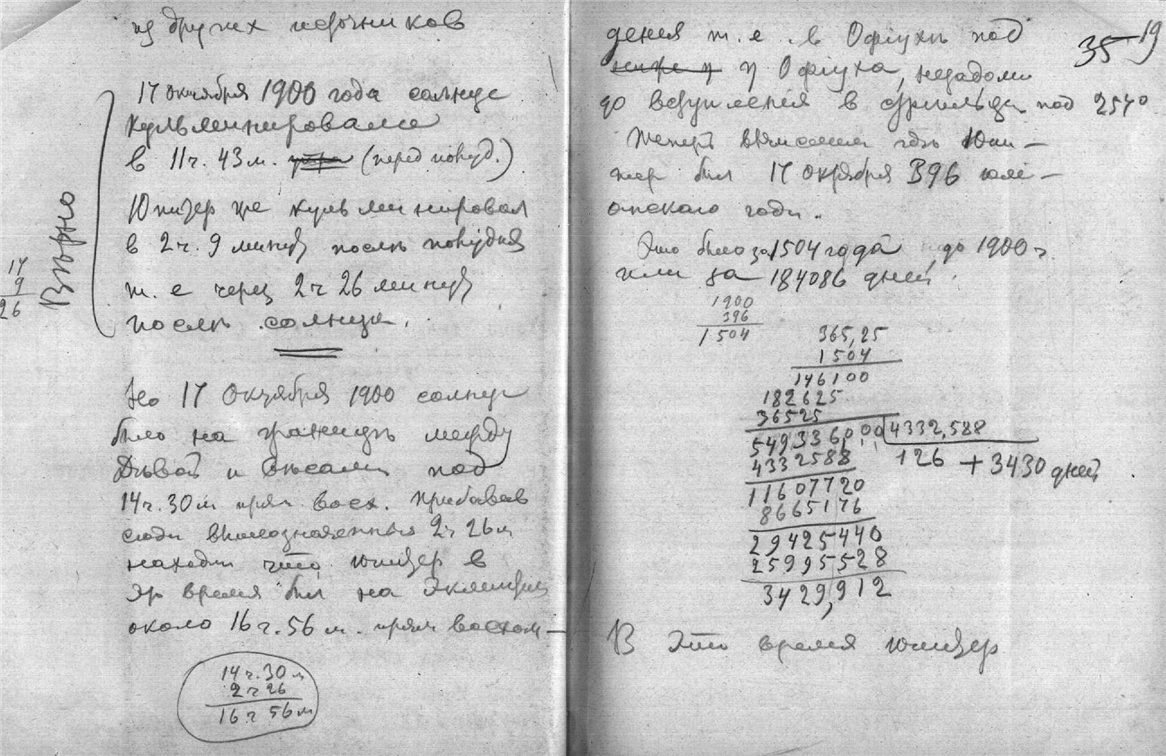 из других источников
17 октября 1900 года солнце
кульминировало
в 11 ч. 43 м. утра (перед полуд.)
Юпитер же кульминировал
в 2 ч. 9 минут послѣ полудня
т. е через 2 ч 26 минут
послѣ солнца.
Вѣрно
17
9
26
Но 17 Октября 1900 солнце
было на границѣ между
Дѣвой и Вѣсами под
14 ч. 30 м прям восх. Прибавив
сюда вышеозначенныя 2 ч 26 м
находим что юпитер в
это время был на эклиптике
около 16 ч. 56 м. прям восхож–
14 ч. 30 м
2 ч 26
16 ч 56 м
35 19
дения т. е. в Офіухѣ под
η Офіуха, незадолго
до вступления в стрельца под 254°
Теперь вычислим гдѣ Юпи–
тер был 17 октября 396 юли–
анского года.
Это было за 1504 года до 1900 г
или за 184086 дней.
1900
396
1504
365,25
1504
146100
182625
36525
549336000 4332,588
4332588 126 + 3430 дней
11607720
8665176
29425440
25995528
3429,912
В это время юпитер